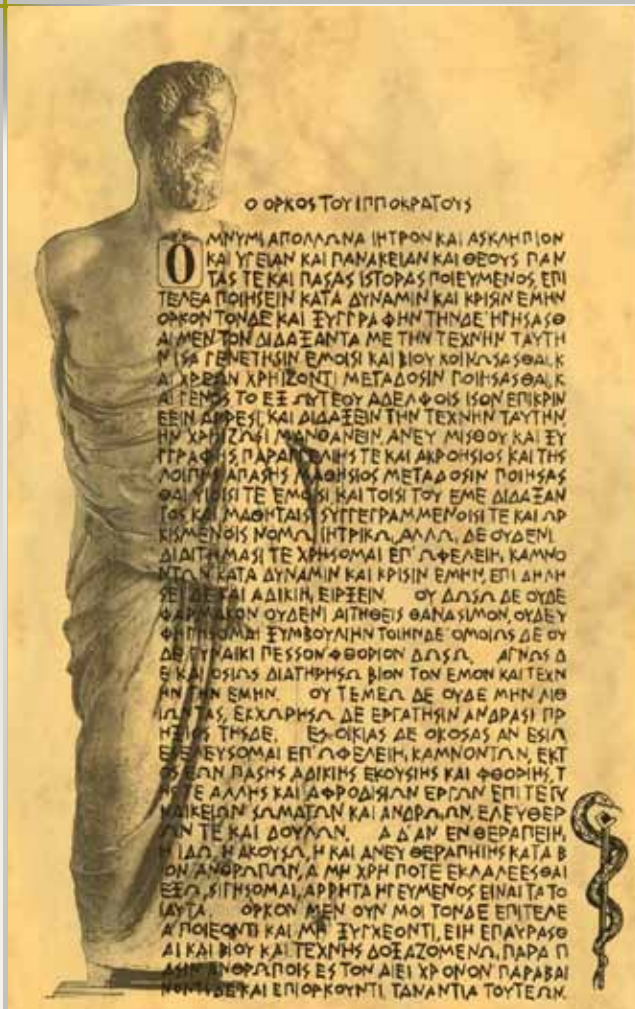 Ο ΟΡΚΟΣ ΤΟΥ ΙΠΠΟΚΡΑΤΟΥΣ
ΟΜΝΥΜΙ ΑΠΟΛΛΩΝΑ ΙΗΤΡΟΝ ΚΑΙ ΑΣΚΛΗΠΙΟΝ
ΚΑΙ ΥΓΕΙΑΝ ΚΑΙ ΠΑΝΑΚΕΙΑΝ ΚΑΙ ΘΕΟΥΣ ΠΑΝ
ΤΑΣ ΤΕ ΚΑΙ ΠΑΣΑΣ ΙΣΤΟΡΑΣ ΠΟΙΕΥΜΕΝΟΣ, ΕΠΙ
ΤΕΛΕΑ ΠΟΙΗΣΕΙΝ ΚΑΤΑ ΔΥΝΑΜΙΝ ΚΑΙ ΚΡΙΣΙΝ ΕΜΗΝ
ΟΡΚΟΝ ΤΟΝΔΕ ΚΑΙ ΞΥΓΓΡΑΦΗΝ ΤΗΝΔΕ ΗΓΗΣΑΣΘ
ΑΙ ΜΕΝ ΤΟΝ ΔΙΔΑΞΑΝΤΑ ΜΕ ΤΗΝ ΤΕΧΝΗΝ ΤΑΥΤΗ
Ν ΙΣΑ ΓΕΝΕΤΗΣΙΝ ΕΜΟΙΣΙ ΚΑΙ ΒΙΟΥ ΚΟΙΝΩΣΑΣΘΑΙ, Κ
ΑΙ ΧΡΕΩΝ ΧΡΗΙΖΟΝΤΙ ΜΕΤΑΔΟΣΙΝ ΠΟΙΗΣΑΣΘΑΙ, Κ
ΑΙ ΓΕΝΟΣ ΤΟ ΕΞ ΩΥΤΕΟΥ ΑΔΕΛΦΟΙΣ ΙΣΟΝ ΕΠΙΚΡΙΝ
ΕΕΙΝ ΑΡΡΕΣΙ, ΚΑΙ ΔΙΔΑΞΕΙΝ ΤΗΝ ΤΕΧΝΗΝ ΤΑΥΤΗΝ
ΗΝ ΧΡΗΙΖΩΣΙ ΜΑΝΘΑΝΕΙΝ, ΑΝΕΥ ΜΙΣΘΟΥ ΚΑΙ ΞΥ
ΓΓΡΑΦΗΣ, ΠΑΡΑΓΓΕΛΙΗΣ ΤΕ ΚΑΙ ΑΚΡΟΗΣΙΟΣ ΚΑΙ ΤΗΣ
ΛΟΙΠΗΣ ΑΠΑΣΗΣ ΜΑΘΗΣΙΟΣ ΜΕΤΑΔΟΣΙΝ ΠΟΙΗΣΑΣ
ΘΑΙ ΥΙΟΙΣΙ ΤΕ ΕΜΟΙΣΙ ΚΑΙ ΤΟΙΣΙ ΤΟΥ ΕΜΕ ΔΙΔΑΞΑΝ
ΤΟΣ ΚΑΙ ΜΑΘΗΤΑΙΣΙ ΣΥΓΓΕΓΡΑΜΜΕΝΟΙΣΙ ΤΕ ΚΑΙ ΩΡ
ΚΙΣΜΕΝΟΙΣ ΝΟΜΩ, ΙΗΤΡΙΚΩ, ΑΛΛΩ, ΔΕ ΟΥΔΕΝΙ.
ΔΙΑΙΤΗΜΑΣΙ ΤΕ ΧΡΗΣΟΜΑΙ ΕΠ' ΩΦΕΛΕΙΗ, ΚΑΜΝΟ
ΝΤΩΝ ΚΑΤΑ ΔΥΝΑΜΙΝ ΚΑΙ ΚΡΙΣΙΝ ΕΜΗΝ, ΕΠΙ ΔΗΛΗ
ΣΕΙ ΔΕ ΚΑΙ ΑΔΙΚΙΗ, ΕΙΡΞΕΙΝ ΟΥ ΔΩΣΩ ΔΕ ΟΥΔΕ
ΦΑΡΜΑΚΟΝ ΟΥΔΕΝΙ ΑΙΤΗΘΕΙΣ ΘΑΝΑΣΙΜΟΝ, ΟΥΔΕ Υ
ΦΗΓΗΣΟΜΑΙ ΞΥΜΒΟΥΛΙΗΝ ΤΟΙΗΝΔΕ ΟΜΟΙΩΣ ΔΕ ΟΥ
ΔΕ ΓΥΝΑΙΚΙ ΠΕΣΣΟΝ ΦΘΟΡΙΟΝ ΔΩΣΩ. ΑΓΝΩΣ Δ
Ε ΚΑΙ ΟΣΙΩΣ ΔΙΑΤΗΡΗΣΩ ΒΙΟΝ ΤΟΝ ΕΜΟΝ ΚΑΙ ΤΕΧΝ
ΗΝ ΤΗΝ ΕΜΗΝ. ΟΥ ΤΕΜΕΩ ΔΕ ΟΥΔΕ ΜΗΝ ΛΙΘ
ΙΩΝΤΑΣ, ΕΚΧΩΡΗΣΩ ΔΕ ΕΡΓΑΤΗΣΙΝ ΑΝΔΡΑΣΙ ΠΡ
ΗΞΙΟΣ ΤΗΣΔΕ. ΕΣ ΟΙΚΙΑΣ ΔΕ ΟΚΟΣΑΣ ΑΝ ΕΣΙΩ
ΕΣΕΛΕΥΣΟΜΑΙ ΕΠ' ΩΦΕΛΕΙΗ, ΚΑΜΝΟΝΤΩΝ, ΕΚΤ
ΟΣ ΕΩΝ ΠΑΣΗΣ ΑΔΙΚΙΗΣ ΕΚΟΥΣΙΗΣ ΚΑΙ ΦΘΟΡΙΗΣ, Τ
ΗΣ ΤΕ ΑΛΛΗΣ ΚΑΙ ΑΦΡΟΔΙΣΙΩΝ ΕΡΓΩΝ ΕΠΙ ΤΕ ΓΥ
ΝΑΙΚΕΙΩΝ ΣΩΜΑΤΩΝ ΚΑΙ ΑΝΔΡΩΩΝ, ΕΛΕΥΘΕΡ
ΩΝ ΤΕ ΚΑΙ ΔΟΥΛΩΝ. Α Δ' ΑΝ ΕΝ ΘΕΡΑΠΕΙΗ,
Η ΙΔΩ, Η ΑΚΟΥΣΩ, Η ΚΑΙ ΑΝΕΥ ΘΕΡΑΠΗΙΗΣ ΚΑΤΑ Β
ΙΟΝ ΑΝΘΡΩΠΩΝ, Α ΜΗ ΧΡΗ ΠΟΤΕ ΕΚΛΑΛΕΕΣΘΑΙ
ΕΞΩ, ΣΙΓΗΣΟΜΑΙ, ΑΡΡΗΤΑ ΗΓΕΥΜΕΝΟΣ ΕΙΝΑΙ ΤΑ ΤΟ
ΙΑΥΤΑ. ΟΡΚΟΝ ΜΕΝ ΟΥΝ ΜΟΙ ΤΟΝΔΕ ΕΠΙΤΕΛΕ
Α ΠΟΙΕΟΝΤΙ ΚΑΙ ΜΗ ΞΥΓΧΕΟΝΤΙ, ΕΙΗ ΕΠΑΥΡΑΣΘ
ΑΙ ΚΑΙ ΒΙΟΥ ΚΑΙ ΤΕΧΝΗΣ ΔΟΞΑΖΟΜΕΝΩ, ΠΑΡΑ Π
ΑΣΙΝ ΑΝΘΡΩΠΟΙΣ ΕΣ ΤΟΝ ΑΙΕΙ ΧΡΟΝΟΝ ΠΑΡΑΒΑΙ
ΝΟΝΤΙ ΔΕ ΚΑΙ ΕΠΙΟΡΚΟΥΝΤΙ, ΤΑΝΑΝΤΙΑ ΤΟΥΤΕΩΝ.